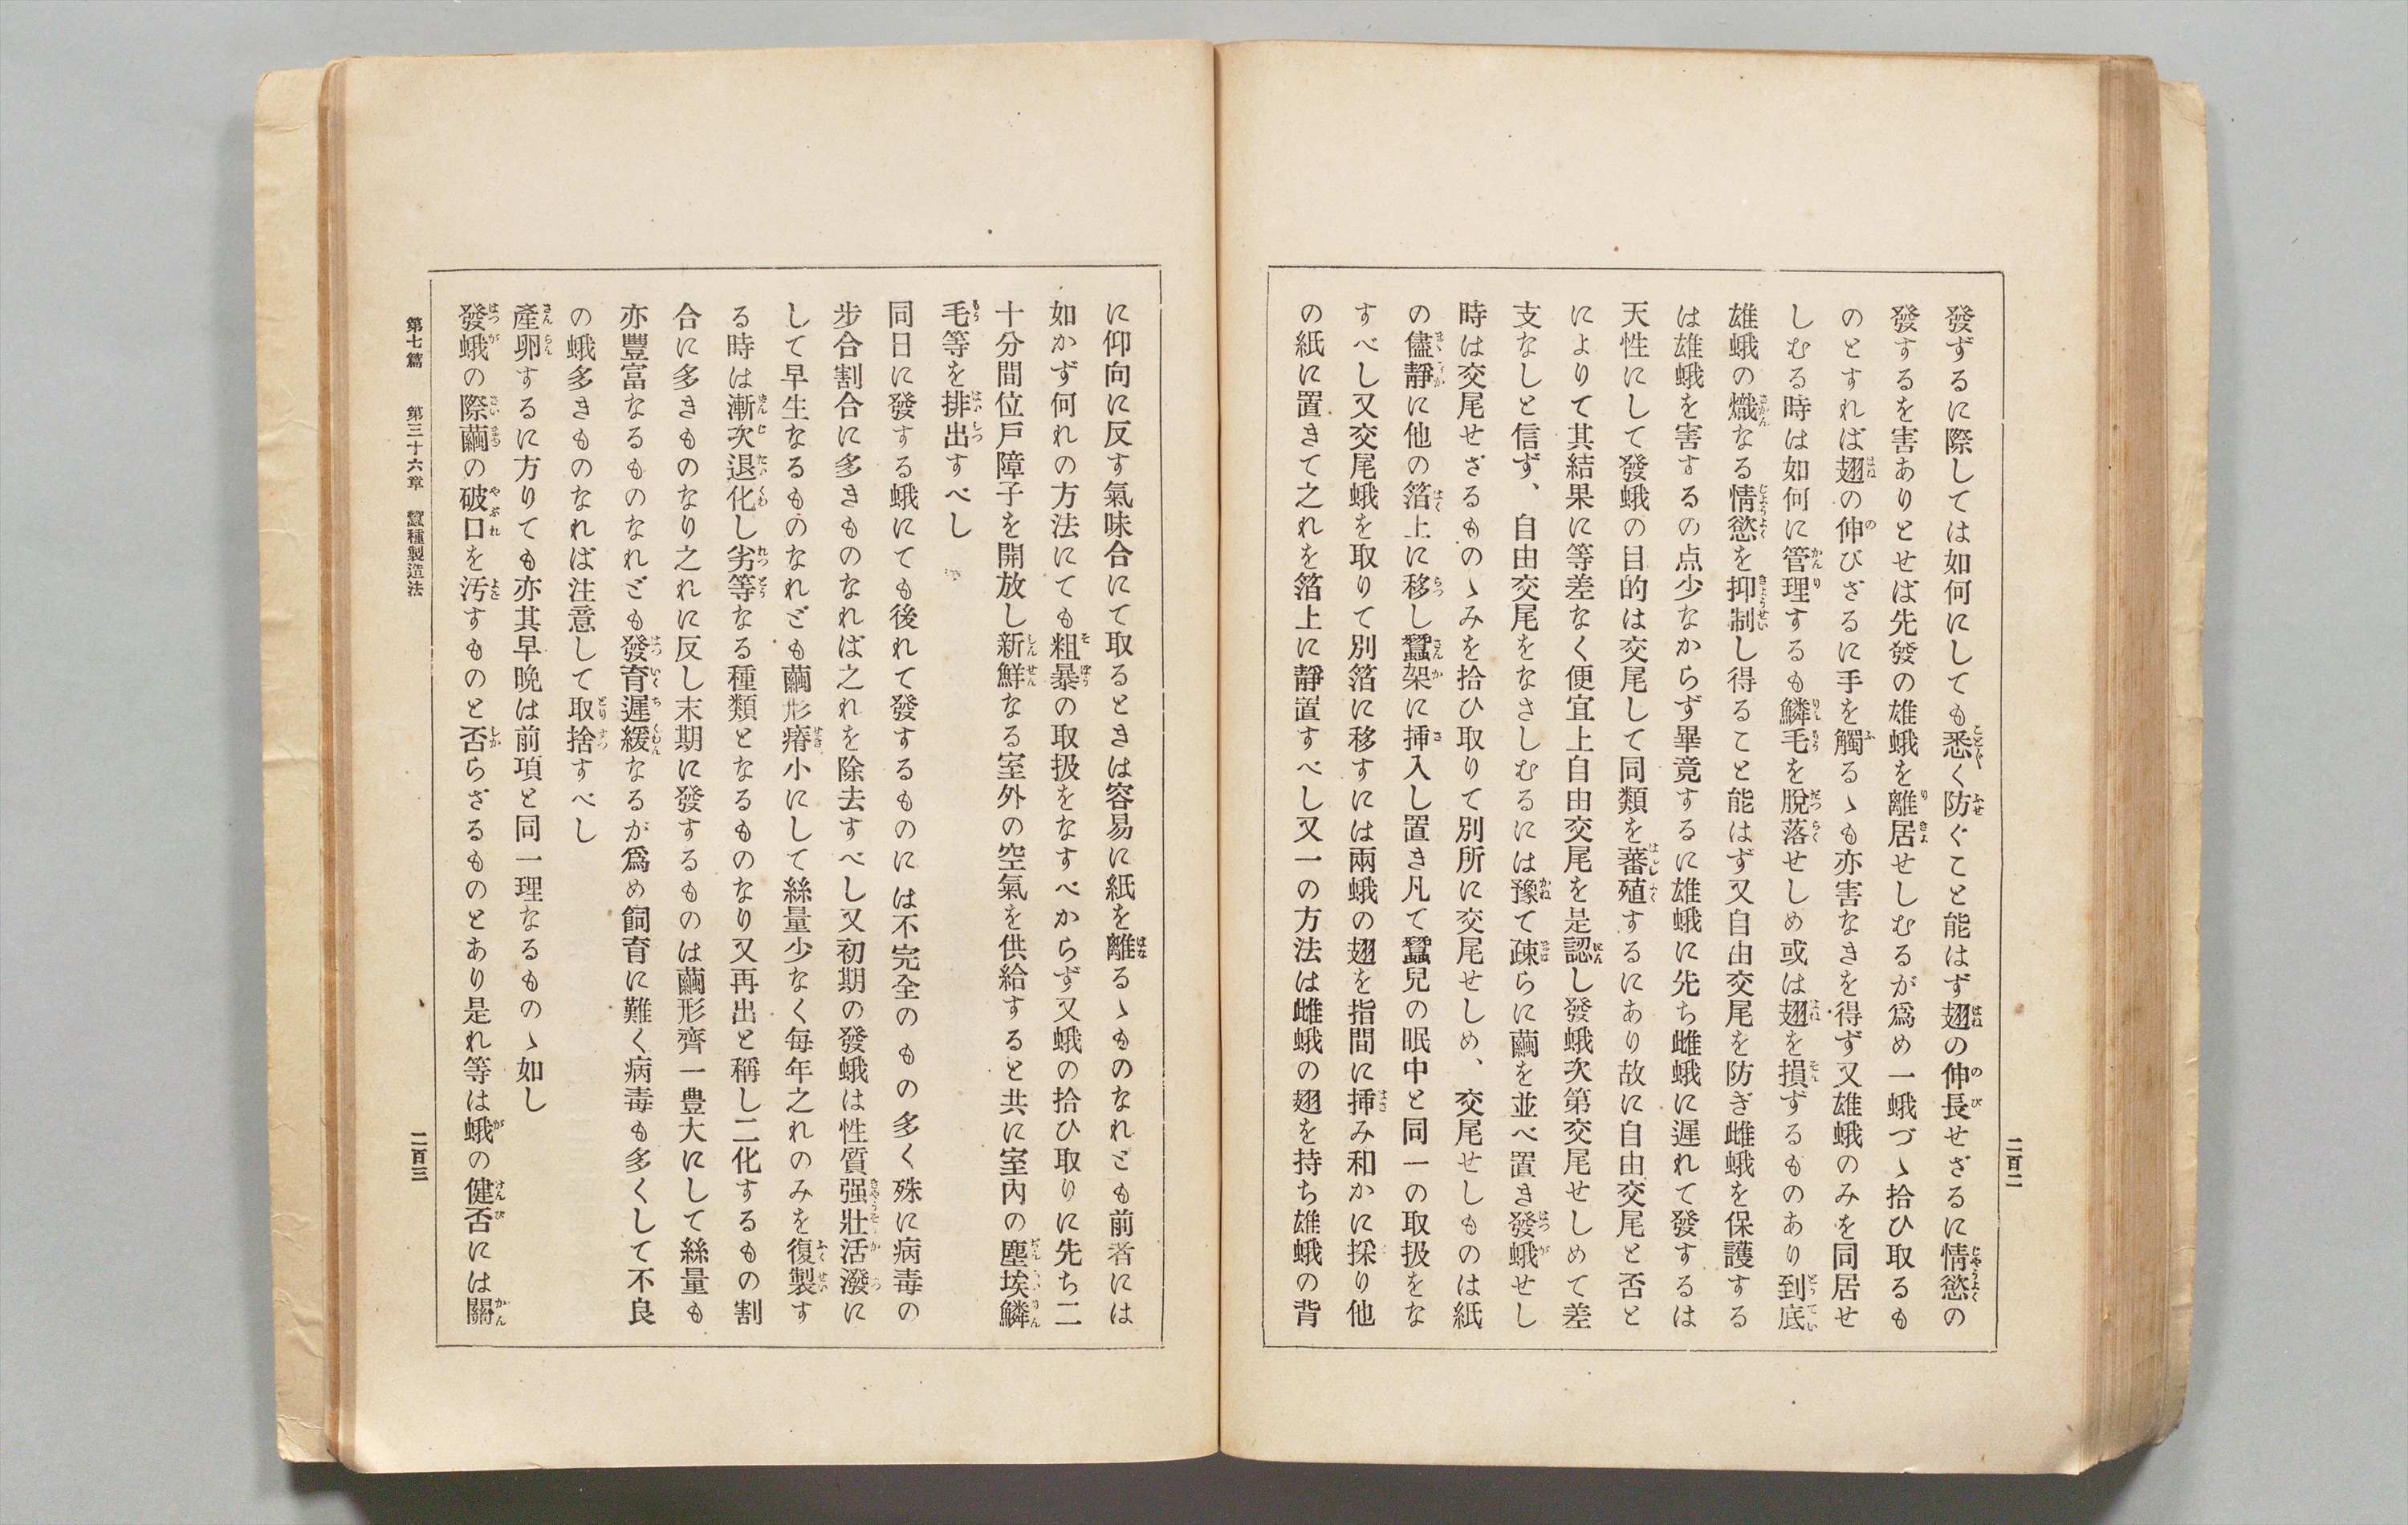 發ずるに際しては如何にしても悉く防ぐこと能はず翅の伸長せざるに情慾の
發するを害ありとせば先發の雄蛾を離居せしむるが爲め一蛾づゝ拾ひ取るも
のとすれば翅の伸びざるに手を觸るゝも亦害なきを得ず又雄蛾のみを同居せ
しむる時は如何に管理するも鱗毛を脫落せしめ或は翅を損ずるものあり到底
雄蛾の熾なる情慾を抑制し得ること能はず又自由交尾を防ぎ雌蛾を保護する
は雄蛾を害するの点少なからず畢竟するに雄蛾に先ち雌蛾に遲れて發するは
天性にして發蛾の目的は交尾して同類を蕃殖するにあり故に自由交尾と否と
によりて其結果に等差なく便宜上自由交尾を是認し發蛾次第交尾せしめて差
支なしと信ず、自由交尾をなさしむるには豫て疎らに繭を並べ置き發蛾せし
時は交尾せざるものゝみを拾ひ取りて別所に交尾せしめ、交尾せしものは紙
の儘靜に他の箔上に移し蠶架に挿入し置き凡て蠶兒の眠中と同一の取扱をな
すべし又交尾蛾を取りて別箔に移すには兩蛾の翅を指間に挿み和かに採り他
の紙に置きて之れを箔上に靜置すべし又一の方法は雌蛾の翅を持ち雄蛾の背
二百二
に仰向に反す氣味合にて取るときは容易に紙を離るゝものなれども前者には
如かず何れの方法にても粗暴の取扱をなすべからず又蛾の拾ひ取りに先ち二
十分間位戶障子を開放し新鮮なる室外の空氣を供給すると共に室內の塵埃鱗
毛等を排出すべし
同日に發する蛾にても後れて發するものには不完全のもの多く殊に病毒の
步合割合に多きものなれば之れを除去すべし又初期の發蛾は性質强壯活潑に
して早生なるものなれども繭形瘠小にして絲量少なく每年之れのみを復製す
る時は漸次退化し劣等なる種類となるものなり又再出と稱し二化するもの割
合に多きものなり之れに反し末期に發するものは繭形齊一豊大にして絲量も
亦豐富なるものなれども發育遲緩なるが爲め飼育に難く病毒も多くして不良
の蛾多きものなれば注意して取捨すべし
產卵するに方りても亦其早晩は前項と同一理なるものゝ如し
發蛾の際繭の破口を汚すものと否らざるものとあり是れ等は蛾の健否には關
第七篇　第三十六章　蠶種製造法
二百三